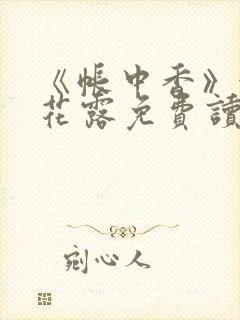 《帳中香》
花露免費讀
剜心人